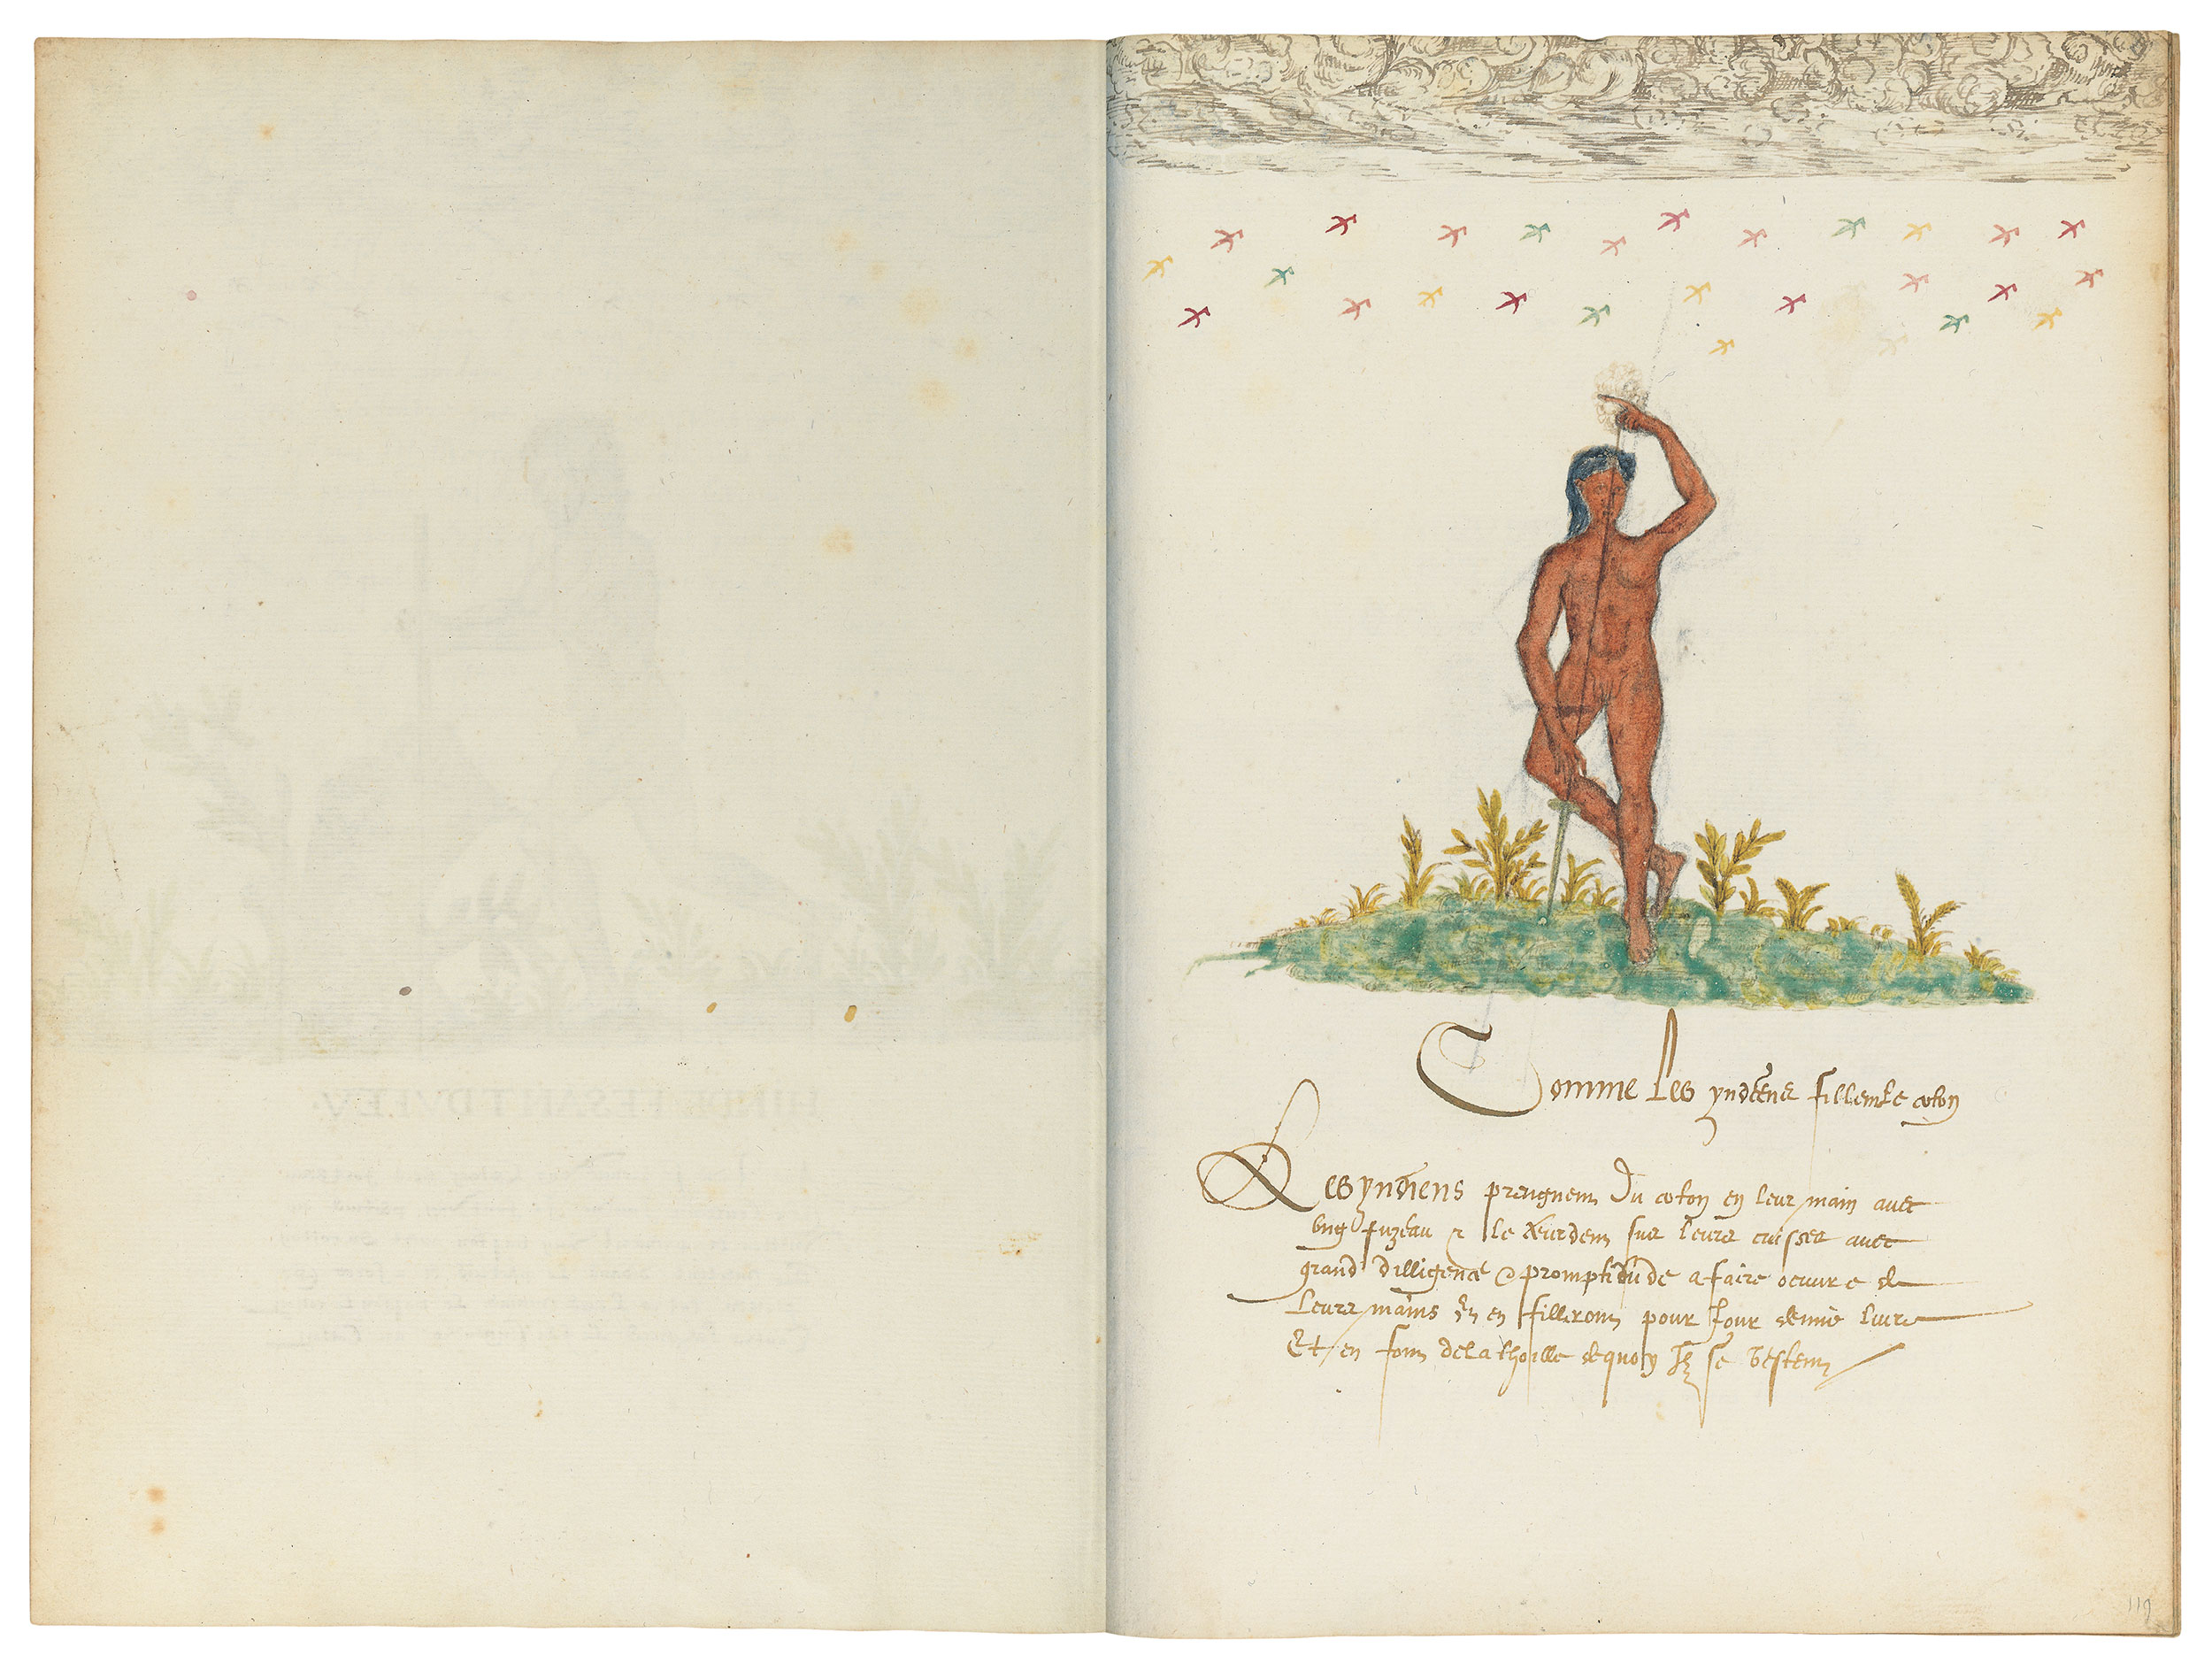 Comme les yndiens fillent le coton
Les yndiens preignent du coton en leur main avec
ung fuzeau & le tourdent sur leurs cuisses avec
grand dilligence & promptitude a faire oeuvre de
leurs mains Ilz en filleront pour jour demie livre
Et en font de la thoille de quoy Ilz se vestent
119